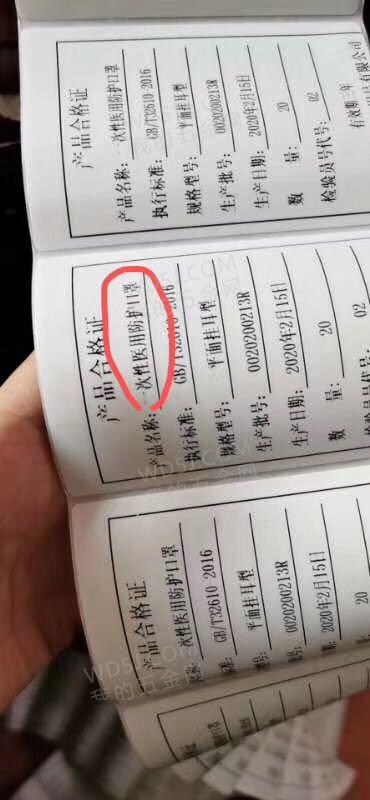 产品合格证
产品名称:一次性医用防护口罩
执行标准:GB/T32610-2016
规格型号:平面挂耳型
生产批号:0020200213R
生产日期:2020年2月15日
数 量:20
检验员号代号:02
有效期三年
有限公司
产品合格证
产品名称:一次性医用防护口罩
执行标准:GB/T32610-2016
规格型号:平面挂耳型
生产批号:0020200213R
生产日期:2020年2月15日
数 量:20
检验员号代号:02
产品合格证
一次性医用防护口罩
GB/T32610-2016
平面挂耳型
0020200213R
2020年2月15日
20
WD57.COM
我的五金网